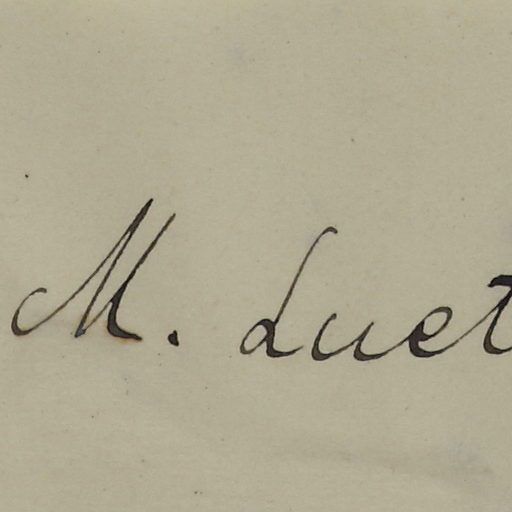 M. Luet